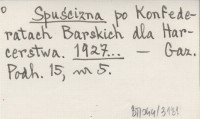 Spuścizna po Konfede-
ratach Barskich dla Har-
cerstwa. 1927... — Gaz.
Podh. 15, nr 5.